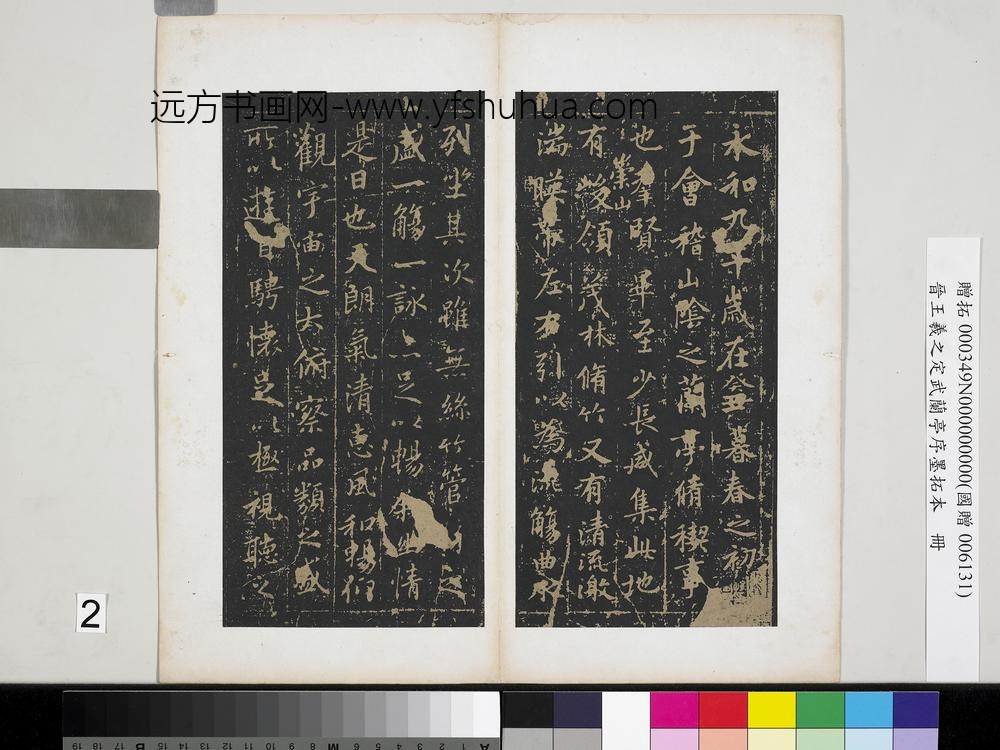 远方书画网-www.yfshuhua.com
永和九年歲在癸丑暮春之初
于會稽山陰之蘭亭脩稧事
也羣賢畢至少長咸集此地
有崇山
峻領茂林脩竹又有清流激
湍暎帶左右引以為流觴曲水
列坐其次雖無絲竹管之
盛一觴一詠亦足以暢幽情
是日也天朗氣清惠風和暢仰
觀宇宙之大俯察品類之盛
所以遊目騁懷足以極視聽之
贈拓 000349N000000000(國贈 006131)
晉王羲之定武蘭亭序墨拓本 冊
2